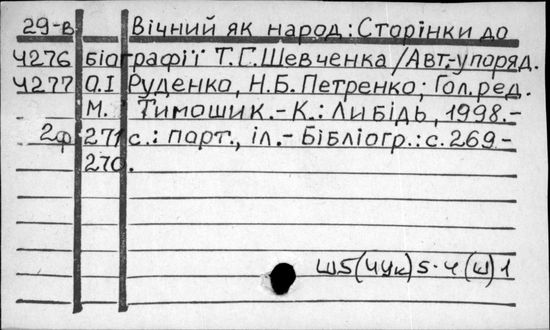 29-в Вічний як народ: Сторінки до
4276 біографії Т.Г.Шевченка/Авт.-упоряд.
4277 О.І Руденко, Н.Б. Петренко; Гол.ред.
М. Тимошик.-К.: Либідь, 1998.-
2ф 271 с.: парт., іл.- Бібліогр.: с.269-
270.
Ш5(4Ук)5-4(Ш)1